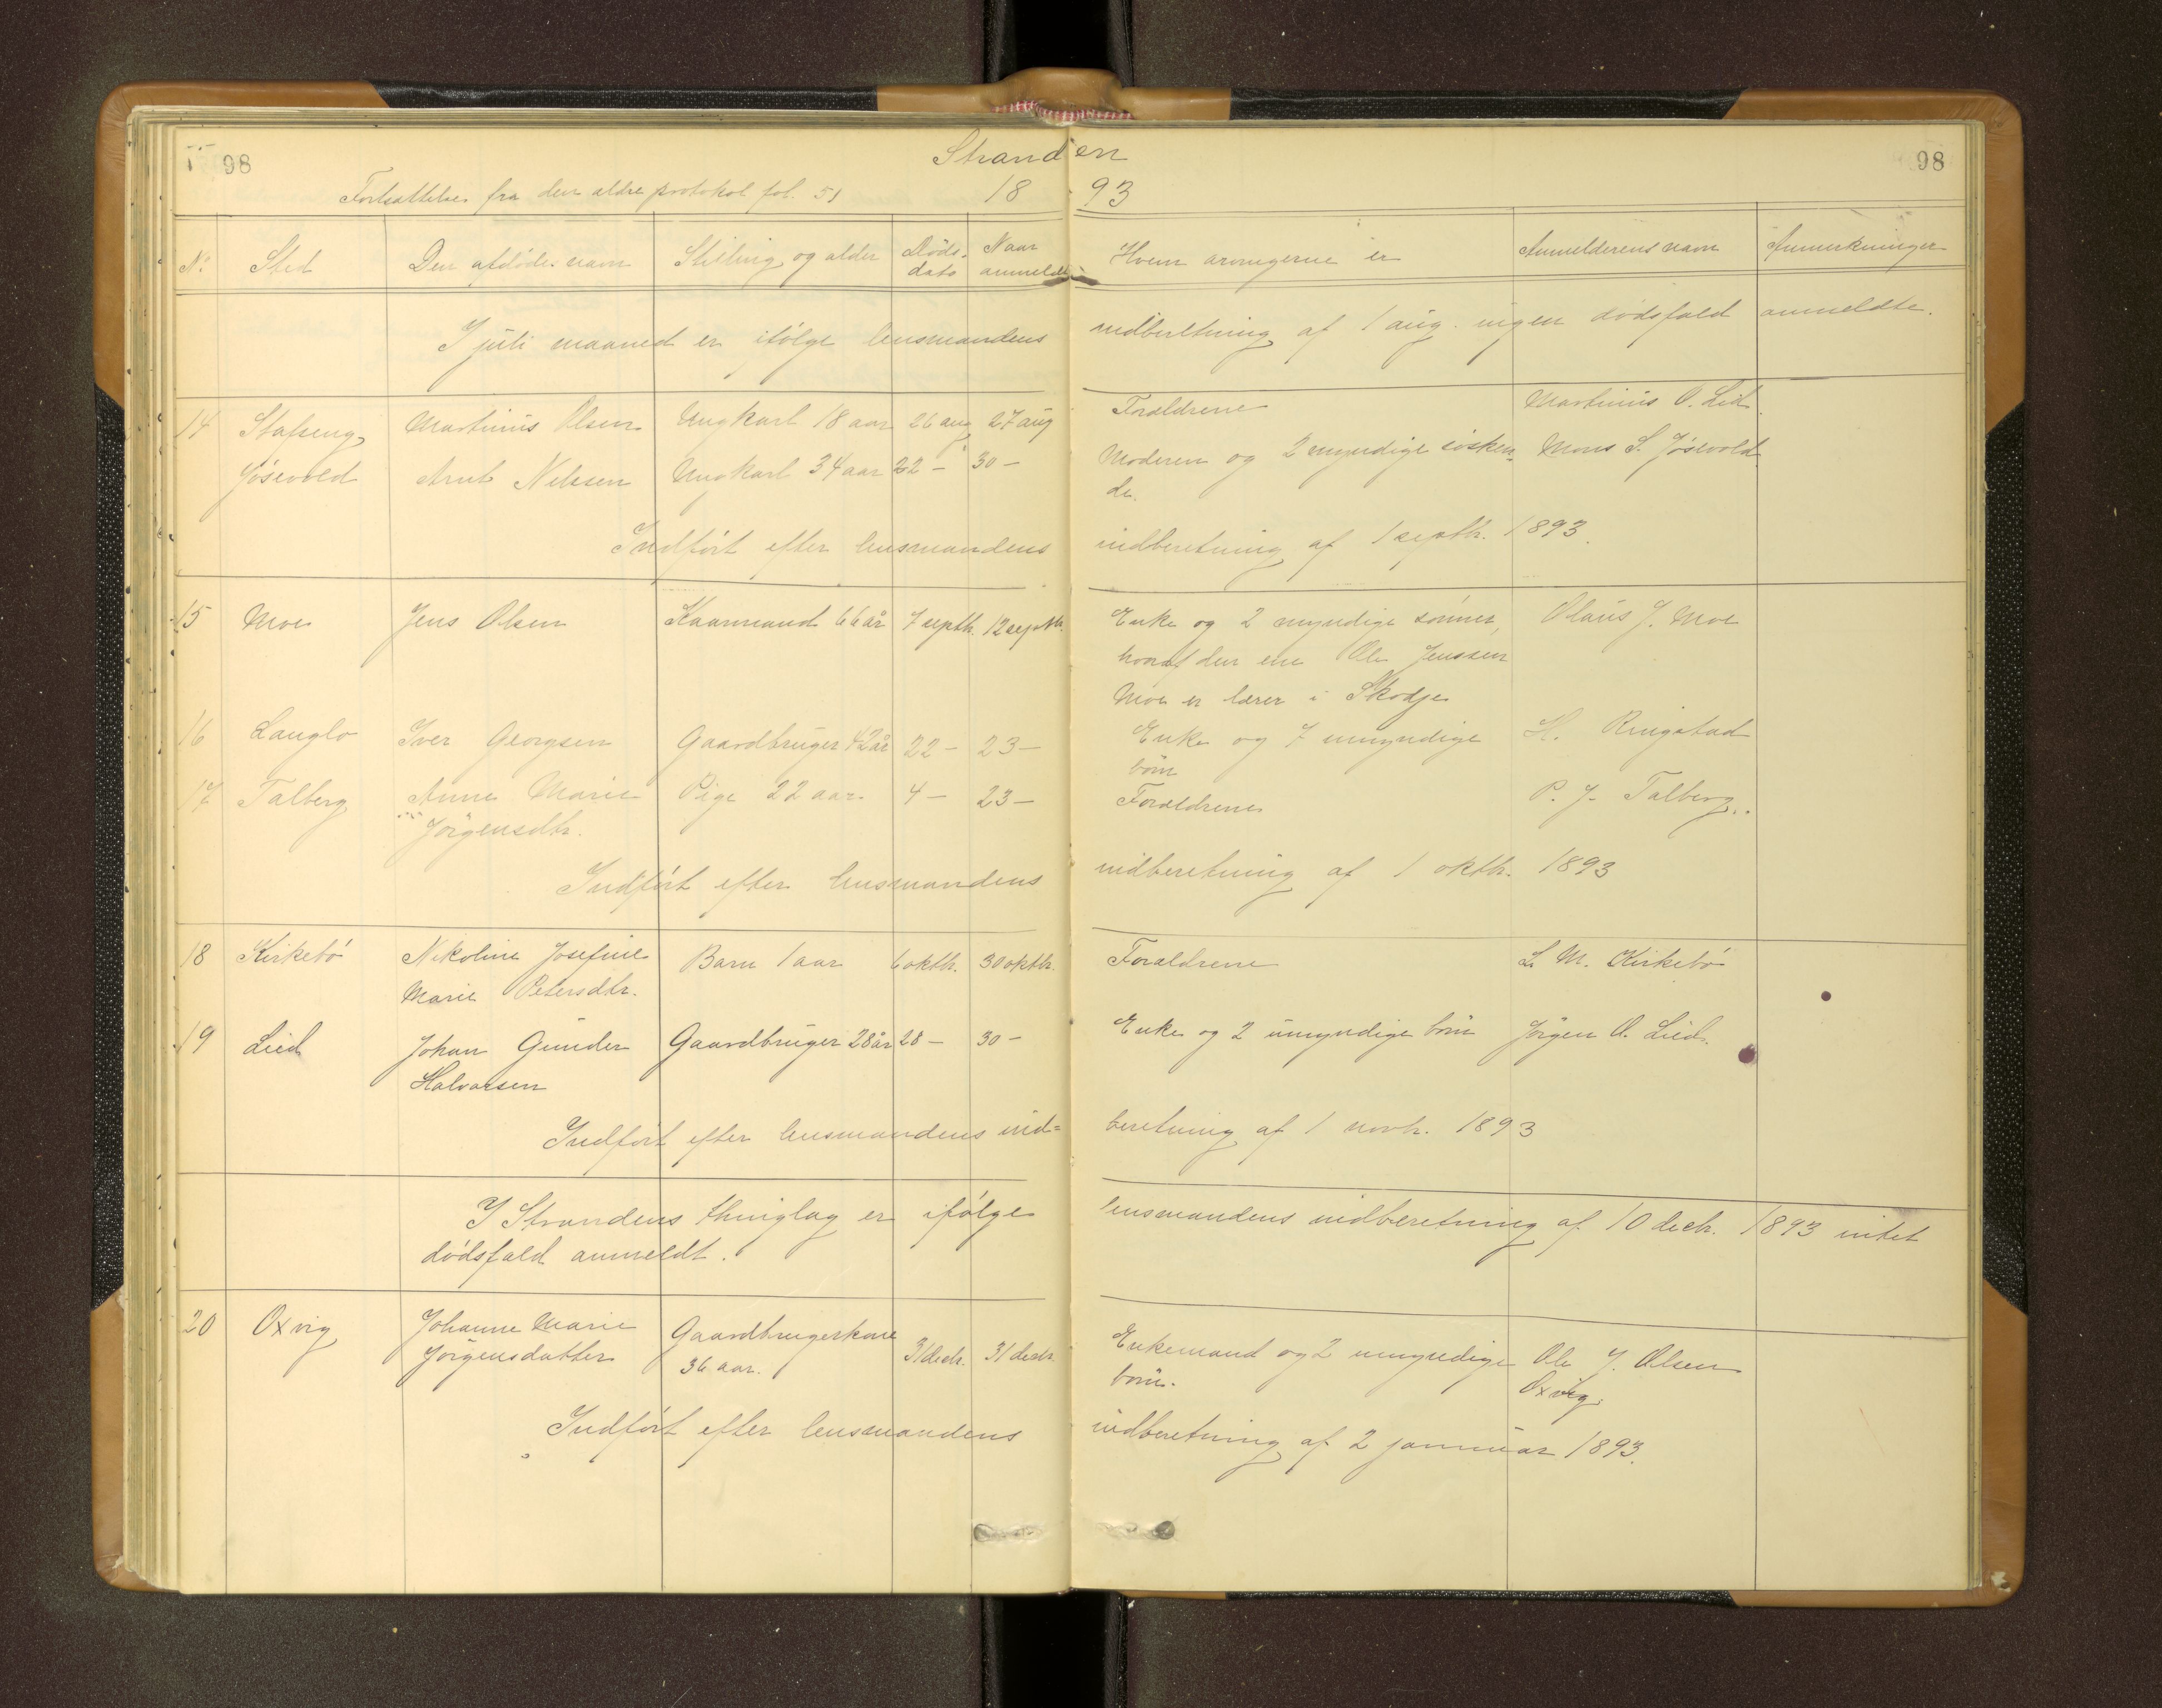 98 Stranden 98
Fortsættelse fra den ældre protokol fol. 51 1893
No Sted Den afdødes navn Stilling og alder Døds-dato Naar anmeldt Hvem arvingerne er Anmelderens navn Anmerkninger
I juli maaned er ifølge lensmandens indberetning af 1 aug. ingen dødsfald anmeldte.
14 Stafseng Martinus Olsen Ungkarl 18 aar 26 aug 27 aug Forældrene Martinus O. Lid
Jøsevold Arnt Nilssen Ungkarl 34 aar 22 – 30 – Moderen og 2 myndige søsken- Mons S. Jøsevold
de.
Indført efter lensmandens indberetning af 1 septbr. 1893.
15 Moe Jens Olsen Kaarmand 66 år 7 septbr. 12 septbr. Enke og 2 myndige sønner, Olaus J. Moe
hvoraf den ene Ole Jenssen
Moe er lærer i Skodje
16 Langlo Iver Georgsen Gaardbruger 42 år 22 – 23 – Enke og 7 umyndige H. Ringstad
børn
17 Talberg Anne Marie Pige 22 aar 4 – 23 – Forældrene P. J. Talberg.
Jørgensdtr.
Indført efter lensmandens indberetning af 1 oktbr. 1893
18 Kirkebø Nikoline Josefine Barn 1 aar 6 oktbr. 30 oktbr. Forældrene L. M. Kirkebø
Marie Petersdtr.
19 Lied Johan Gunder Gaardbruger 28 år 28 – 30 – Enke og 2 umyndige børn Jørgen O. Lied.
Halvorsen
Indført efter lensmandens ind= beretning af 1 novbr. 1893
I Strandens thinglag er ifølge lensmandens indberetning af 10 decbr. 1893 intet
dødsfald anmeldt.
20 Oxvig Johanne Marie Gaardbrugerkone 31 decbr. 31 decbr. Enkemand og 2 umyndige Ole J. Olsen
Jørgensdatter 36 aar. børn. Oxvig.
Indført efter lensmandens indberetning af 2 januar 1893.